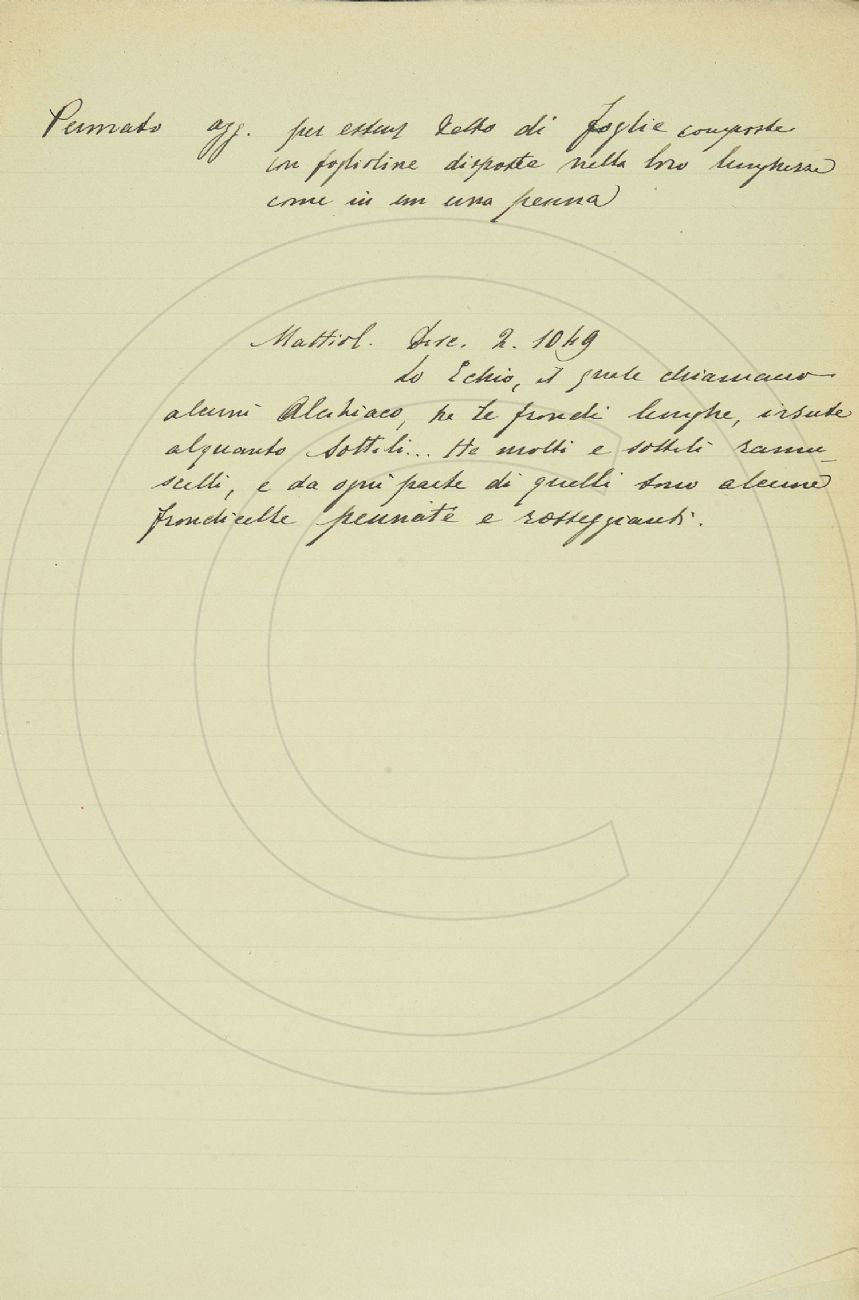 Pennato agg. per essere detto di foglie composte
con foglioline disposte nella loro lunghezza
come in un una penna
Mattiol. Disc. 2. 1049
Lo Echio, il quale chiamano
alcuni Alcibiaco, ha le frondi lunghe, irsute
alquanto sottili... Ha molti e sottili ramu_
scelli, e da ogni parte di quelli sono alcune
frondicelle pennate e rosseggianti.